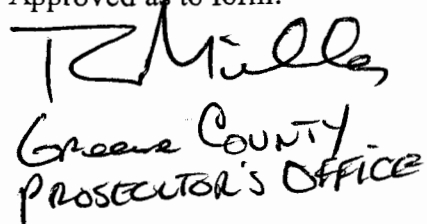 Approved as to form:
R Miller
Greene COUNTY
PROSECUTOR'S OFFICE